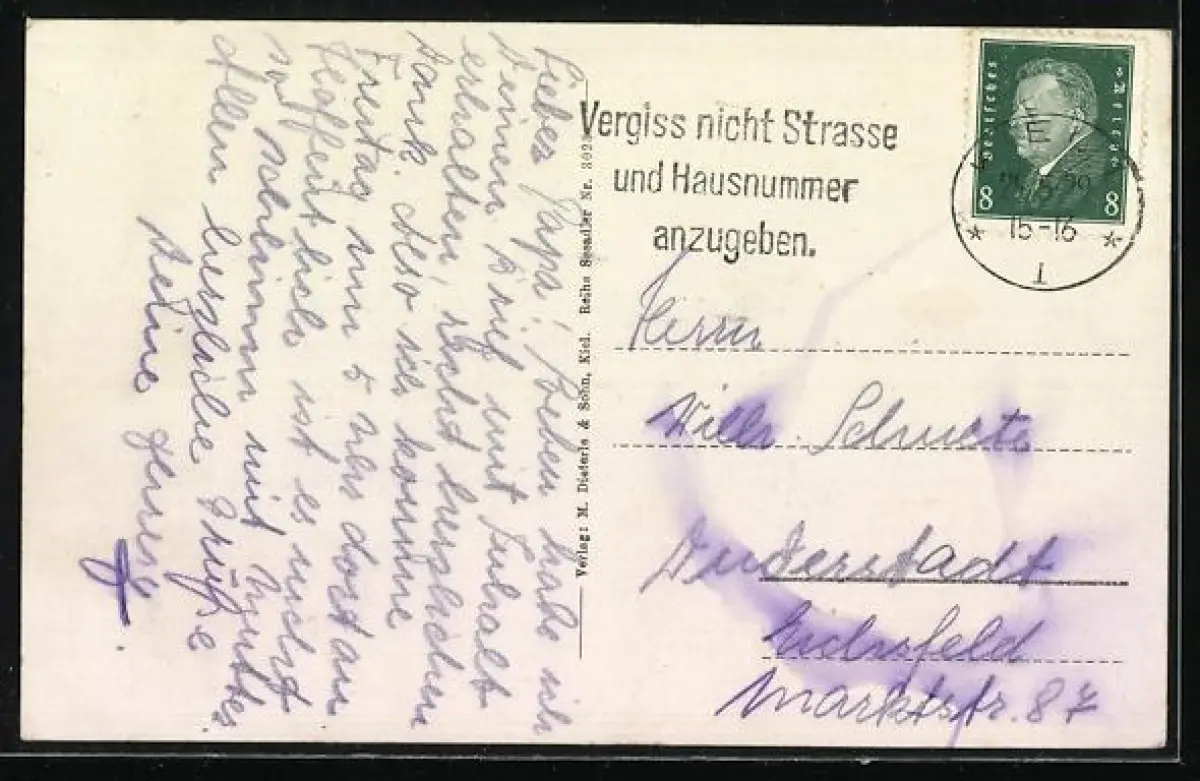 Lieber Papa! Soeben habe ich
Deinen Brief mit Inhalt
erhalten, recht herzlichen
Dank. Also ich komme
Freitag um 5 Uhr dort an
Hoffentlich ist es nicht
so schlimm mit Mutter.
Allen herzliche Grüße
Deine
Verlag: M. Dieterle & Sohn, Kiel. Reihe Seeadler Nr.
Vergiss nicht Strasse
und Hausnummer
anzugeben.
Deutsches Reich
8 8
15-16
1
Herrn
Willi Schucte
Duderstadt
Eichsfeld
Marktstr. 87